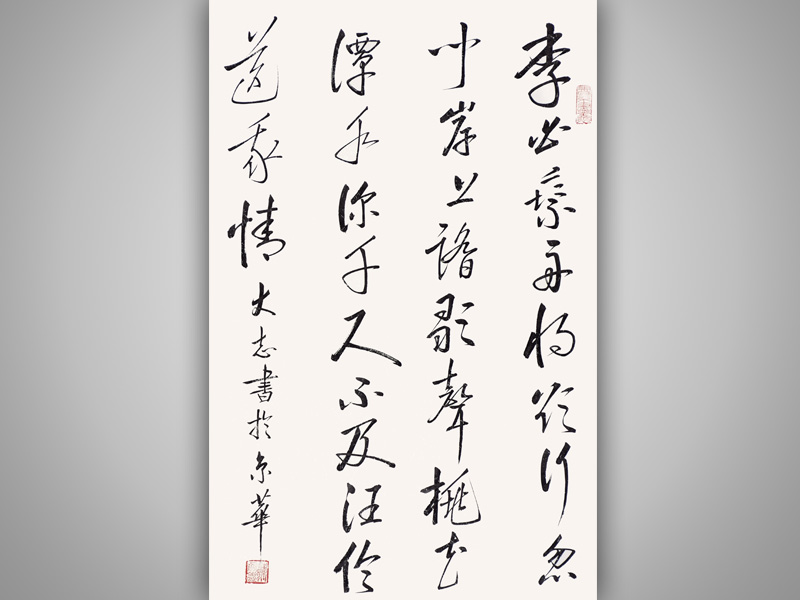 李白乘舟將欲行忽
聞岸上踏歌聲桃花
潭水深千尺不及汪倫
送我情大志書於京華